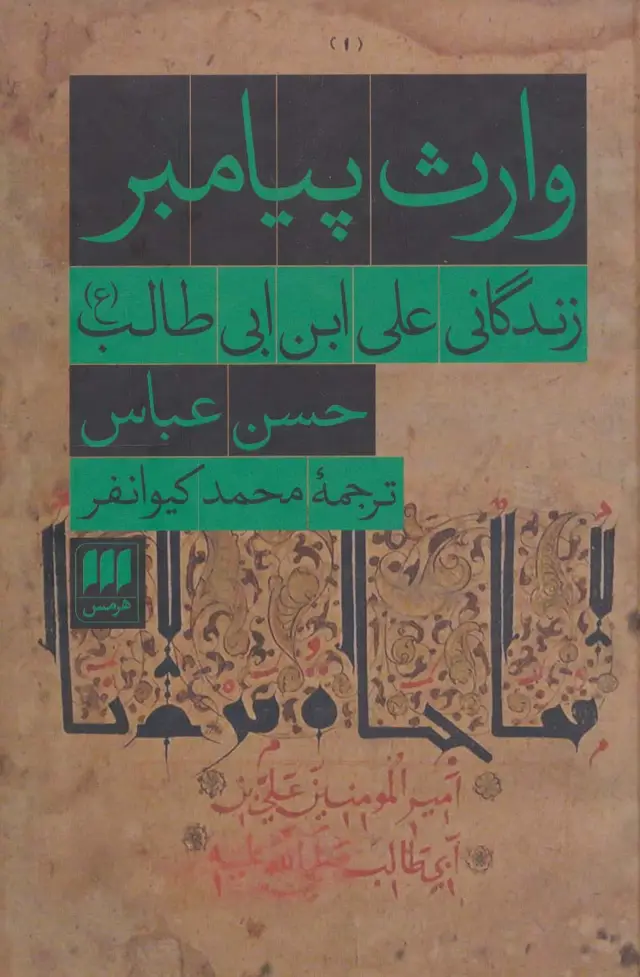 (۱)
وارث پیامبر
زندگانی علی ابن ابی طالب (ع)
حسن عباس
ترجمهٔ محمد کیوانفر
هرمس
أمير المومنين علي بن
أبي طالب صلى الله عليه